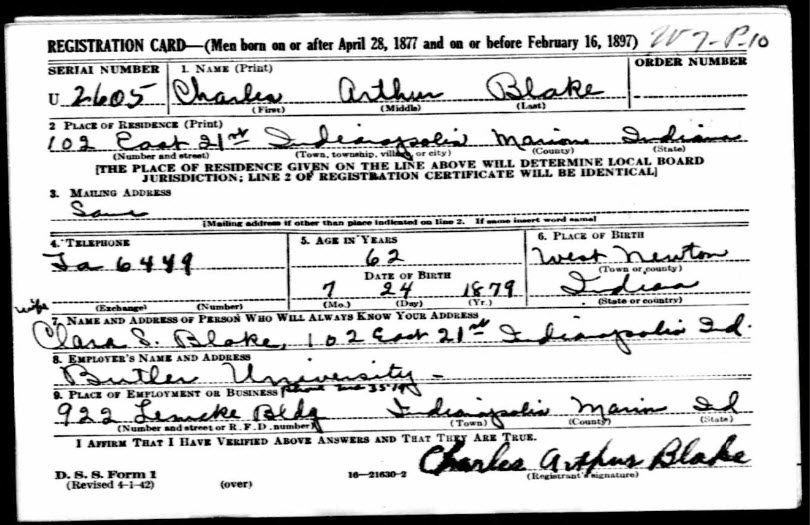 REGISTRATION CARD—(Men born on or after April 28, 1877 and on or before February 16, 1897) W 7-P-10
SERIAL NUMBER 1. NAME (Print) ORDER NUMBER
U 2605 Charles Arthur Blake
(First) (Middle) (Last)
2 PLACE OF RESIDENCE (Print)
102 East 21st Indianapolis Marion Indiana
(Number and street) (Town, township, village, or city) (County) (State)
[THE PLACE OF RESIDENCE GIVEN ON THE LINE ABOVE WILL DETERMINE LOCAL BOARD
JURISDICTION; LINE 2 OF REGISTRATION CERTIFICATE WILL BE IDENTICAL]
3. MAILING ADDRESS
Same
[Mailing address if other than place indicated on line 2. If same insert word same]
4. TELEPHONE 5. AGE IN YEARS 6. PLACE OF BIRTH
Ta 6449 62 West Newton
(Town or county)
DATE OF BIRTH
7 24 1879 Indiana
(Exchange) (Number) (Mo.) (Day) (Yr.) (State or country)
wife
7. NAME AND ADDRESS OF PERSON WHO WILL ALWAYS KNOW YOUR ADDRESS
Clara S. Blake, 102 East 21st Indianapolis Ind.
8. EMPLOYER'S NAME AND ADDRESS
Butler University -
9. PLACE OF EMPLOYMENT OR BUSINESS phone
922 Lemcke Bldg Indianapolis Marion Ind
(Number and street or R. F. D. number) (Town) (County) (State)
I AFFIRM THAT I HAVE VERIFIED ABOVE ANSWERS AND THAT THEY ARE TRUE.
Charles Arthur Blake
D. S. S. Form 1 16—21630-2 (Registrant's signature)
(Revised 4-1-42) (over)